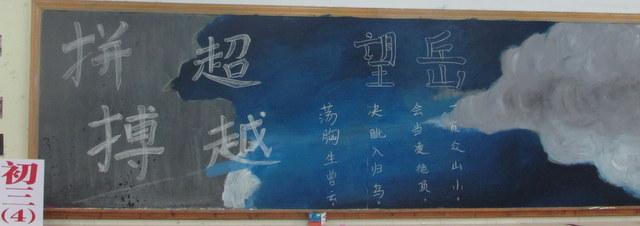 拼搏
超越
望岳
荡胸生曾云，
决眦入归鸟。
会当凌绝顶，
一览众山小。
初三(4)